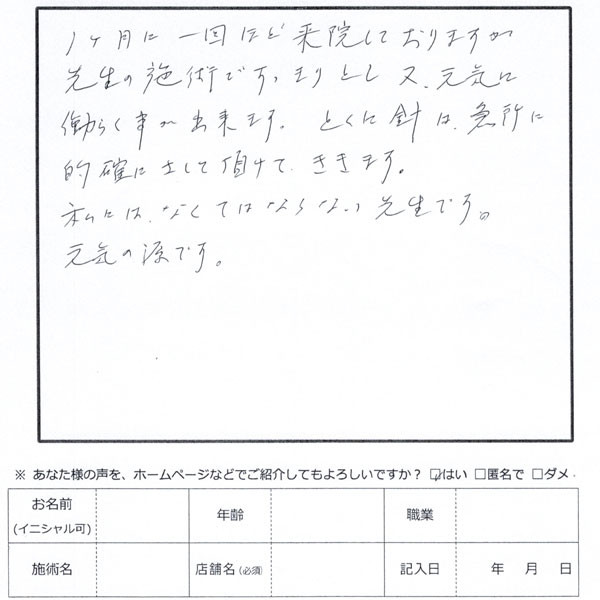 1ヶ月に一回ほど来院しておりますが
先生の施術ですっきりとし又、元気に
働らく事が出来ます。とくに針は、急所に
的確にさして頂けて、ききます。
私には、なくてはならない先生です。
元気の源です。
※ あなた様の声を、ホームページなどでご紹介してもよろしいですか？ ☑はい □匿名で □ダメ
お名前 年齢 職業
(イニシャル可)
施術名 店舗名(必須) 記入日 年 月 日